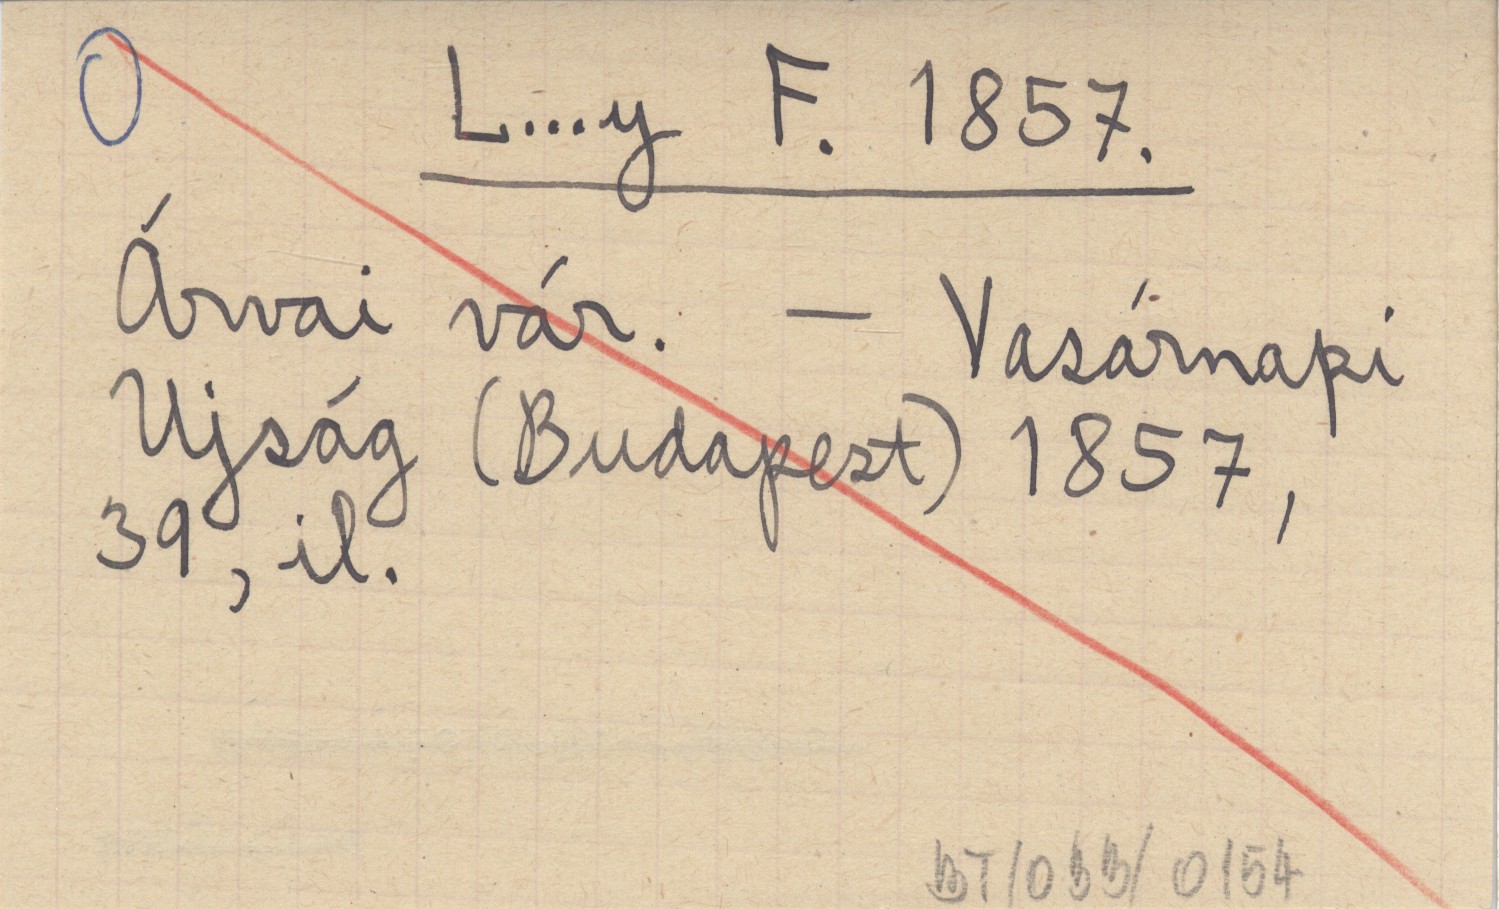 L....y F. 1857.
Árvai vár. — Vasárnapi
Ujság (Budapest) 1857,
39, il.
0154